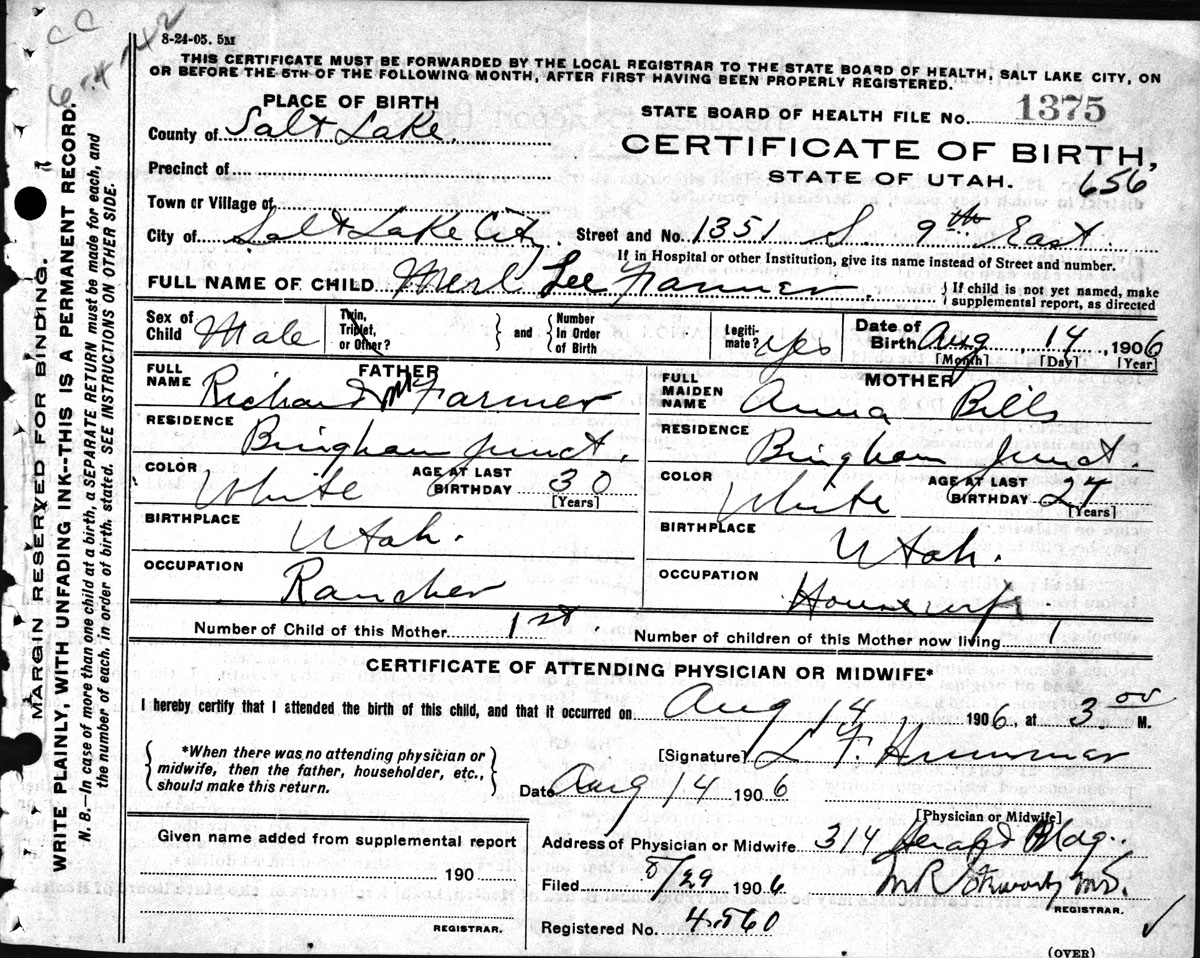 CC
8-24-05. 5M
THIS CERTIFICATE MUST BE FORWARDED BY THE LOCAL REGISTRAR TO THE STATE BOARD OF HEALTH, SALT LAKE CITY, ON
OR BEFORE THE 5TH OF THE FOLLOWING MONTH, AFTER FIRST HAVING BEEN PROPERLY REGISTERED.
PLACE OF BIRTH
STATE BOARD OF HEALTH FILE NO. 1375
County of Salt Lake.
CERTIFICATE OF BIRTH,
Precinct of
STATE OF UTAH. 656
Town or Village of
City of Salt Lake City Street and No. 1351 S. 9th East.
If in Hospital or other Institution, give its name instead of Street and number.
FULL NAME OF CHILD Merl Lee Farmer. { If child is not yet named, make supplemental report, as directed
Sex of Child Male Twin, Triplet, or Other? } and { Number In Order of Birth Legiti-mate? yes Date of Birth Aug 14, 1906
[Month] [Day] [Year]
FATHER
FULL NAME Richard M Farmer
RESIDENCE Bingham Junct.
COLOR White AGE AT LAST BIRTHDAY 30 [Years]
BIRTHPLACE Utah.
OCCUPATION Rancher
MOTHER
FULL MAIDEN NAME Anna Bills
RESIDENCE Bingham Junct.
COLOR White AGE AT LAST BIRTHDAY 27 [Years]
BIRTHPLACE Utah.
OCCUPATION Housewife.
Number of Child of this Mother 1st. Number of children of this Mother now living 1
CERTIFICATE OF ATTENDING PHYSICIAN OR MIDWIFE*
I hereby certify that I attended the birth of this child, and that it occurred on Aug 14 1906, at 3 00 M.
{ *When there was no attending physician or
midwife, then the father, householder, etc.,
should make this return. }
[Signature] L F Hummer
Date Aug 14 1906
[Physician or Midwife]
Given name added from supplemental report
190
REGISTRAR.
Address of Physician or Midwife 314 Herald Bldg.
Filed 8/29 1906 M R Stewart M.D.
REGISTRAR.
Registered No. 4560
(OVER)
MARGIN RESERVED FOR BINDING.
WRITE PLAINLY, WITH UNFADING INK--THIS IS A PERMANENT RECORD.
N. B.--In case of more than one child at a birth, a SEPARATE RETURN must be made for each, and
the number of each, in order of birth, stated. SEE INSTRUCTIONS ON OTHER SIDE.